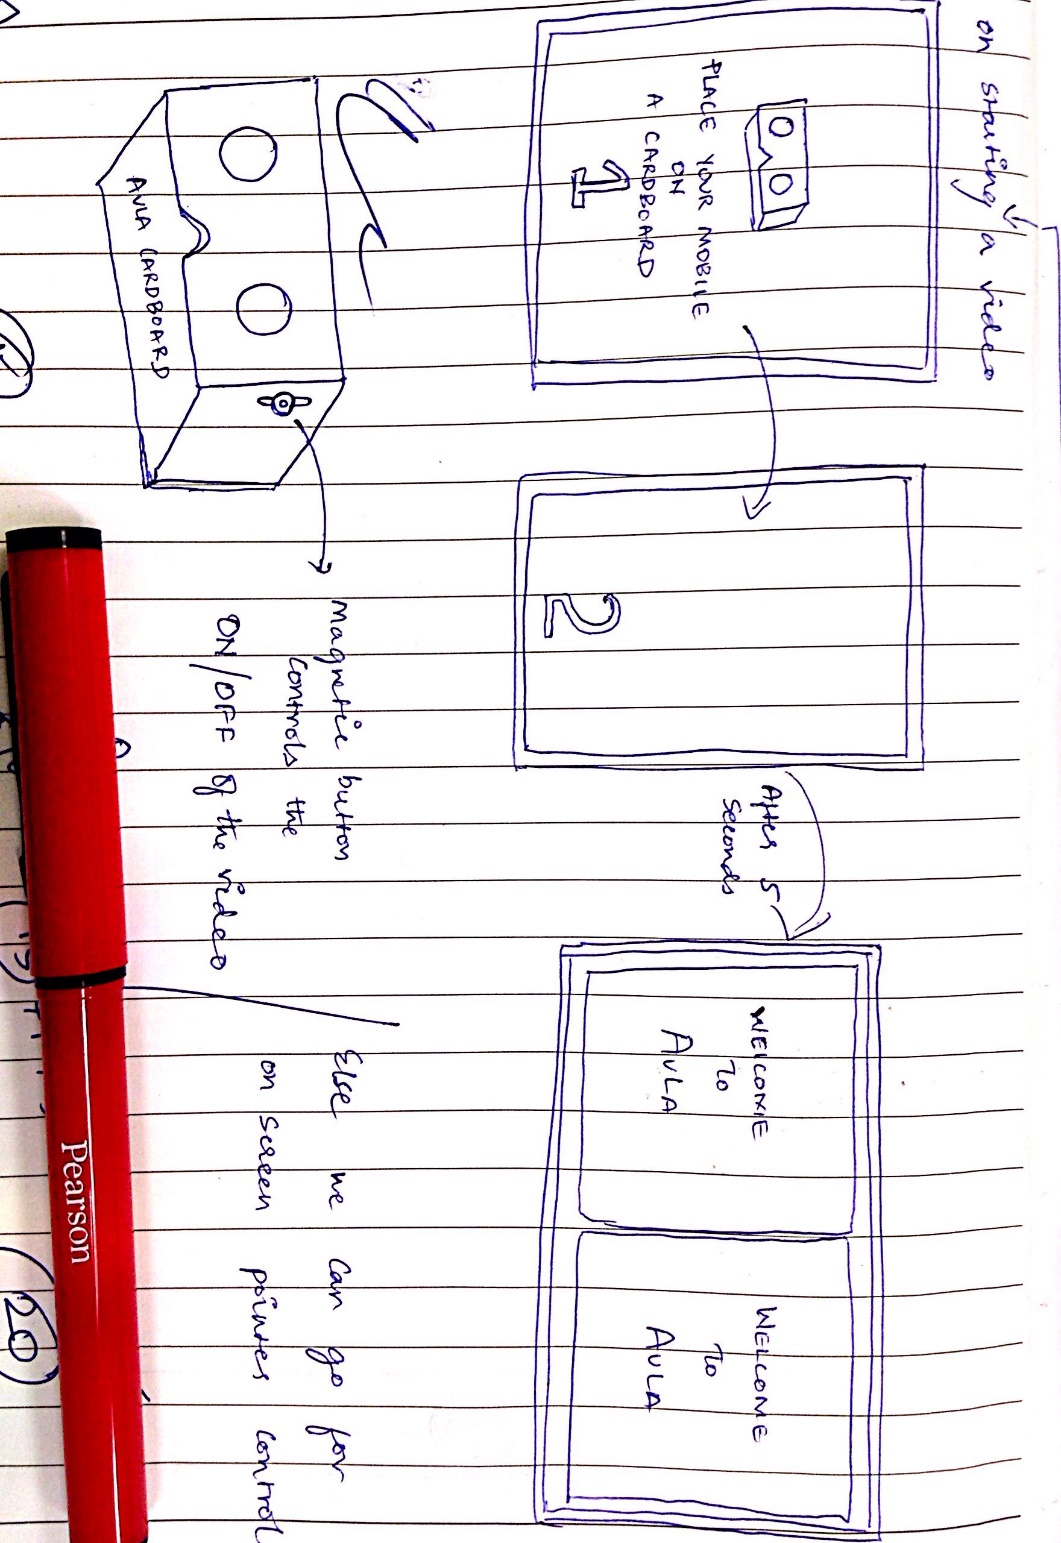 on starting a video
PLACE YOUR MOBILE
ON
A CARDBOARD
1
2
After 5
seconds
WELCOME
To
AULA
WELCOME
To
AULA
AULA CARDBOARD
magnetic button
controls the
ON/OFF of the video
Else we can go for
on screen pointer control
Pearson
20